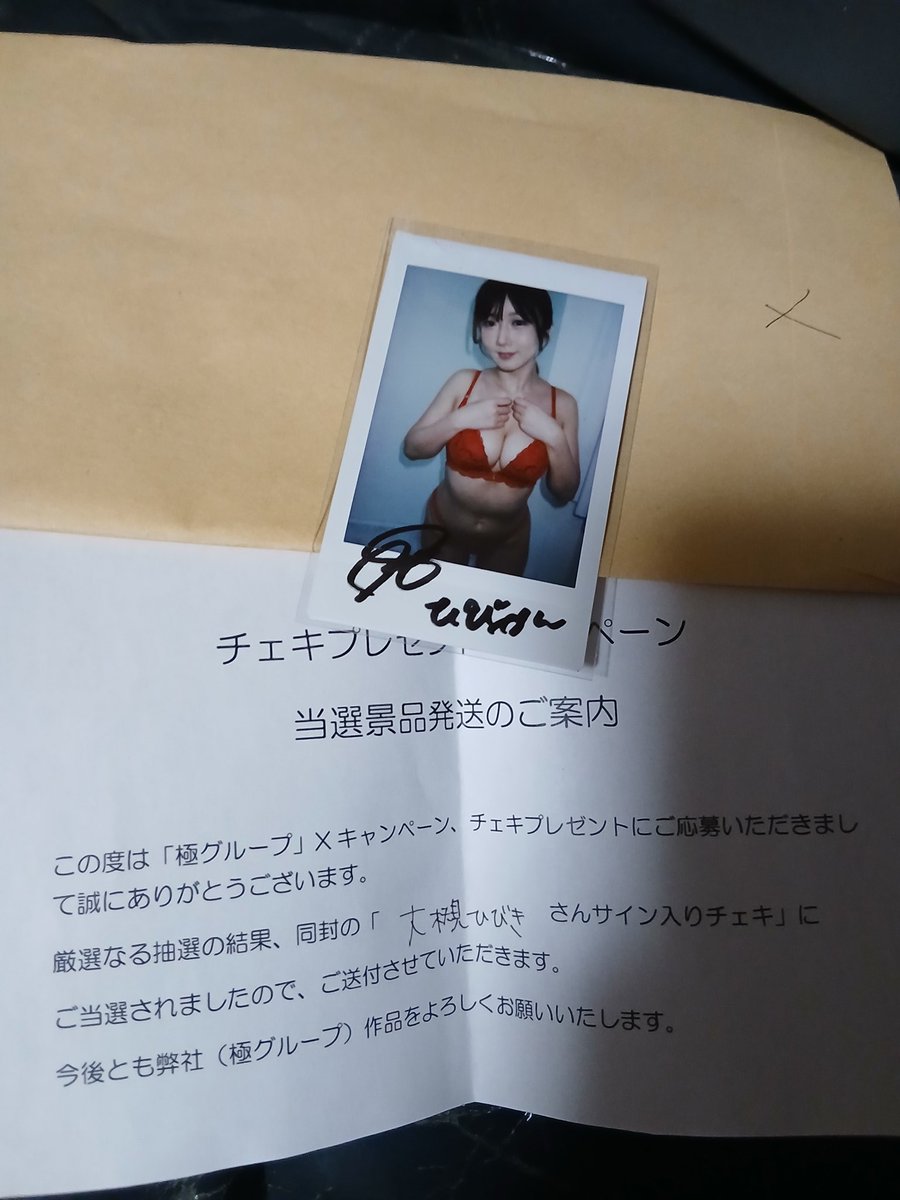 ひびゅん
チェキプレゼント ペーン
当選景品発送のご案内
この度は「極グループ」Xキャンペーン、チェキプレゼントにご応募いただきまし
て誠にありがとうございます。
厳選なる抽選の結果、同封の「 大槻ひびき さんサイン入りチェキ」に
ご当選されましたので、ご送付させていただきます。
今後とも弊社(極グループ)作品をよろしくお願いいたします。